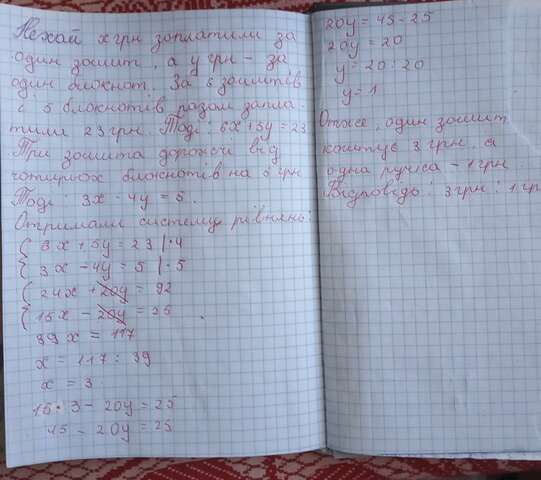 Нехай x грн заплатили за
один зошит, а y грн - за
один блокнот. За 6 зошитів
і 5 блокнотів разом запла-
тили 23 грн. Тоді: 6x+5y=23
Три зошита дорожчі від
чотирьох блокнотів на 5 грн
Тоді: 3x - 4y = 5.
Отримали систему рівнянь:
6x + 5y = 23 |·4
3x - 4y = 5 |·5
24x + 20y = 92
15x - 20y = 25
39x = 117
x = 117 : 39
x = 3
15·3 - 20y = 25
45 - 20y = 25
20y = 45 - 25
20y = 20
y = 20 : 20
y = 1
Отже, один зошит
коштує 3 грн, а
одна ручка - 1 грн.
Відповідь: 3 грн; 1 гр